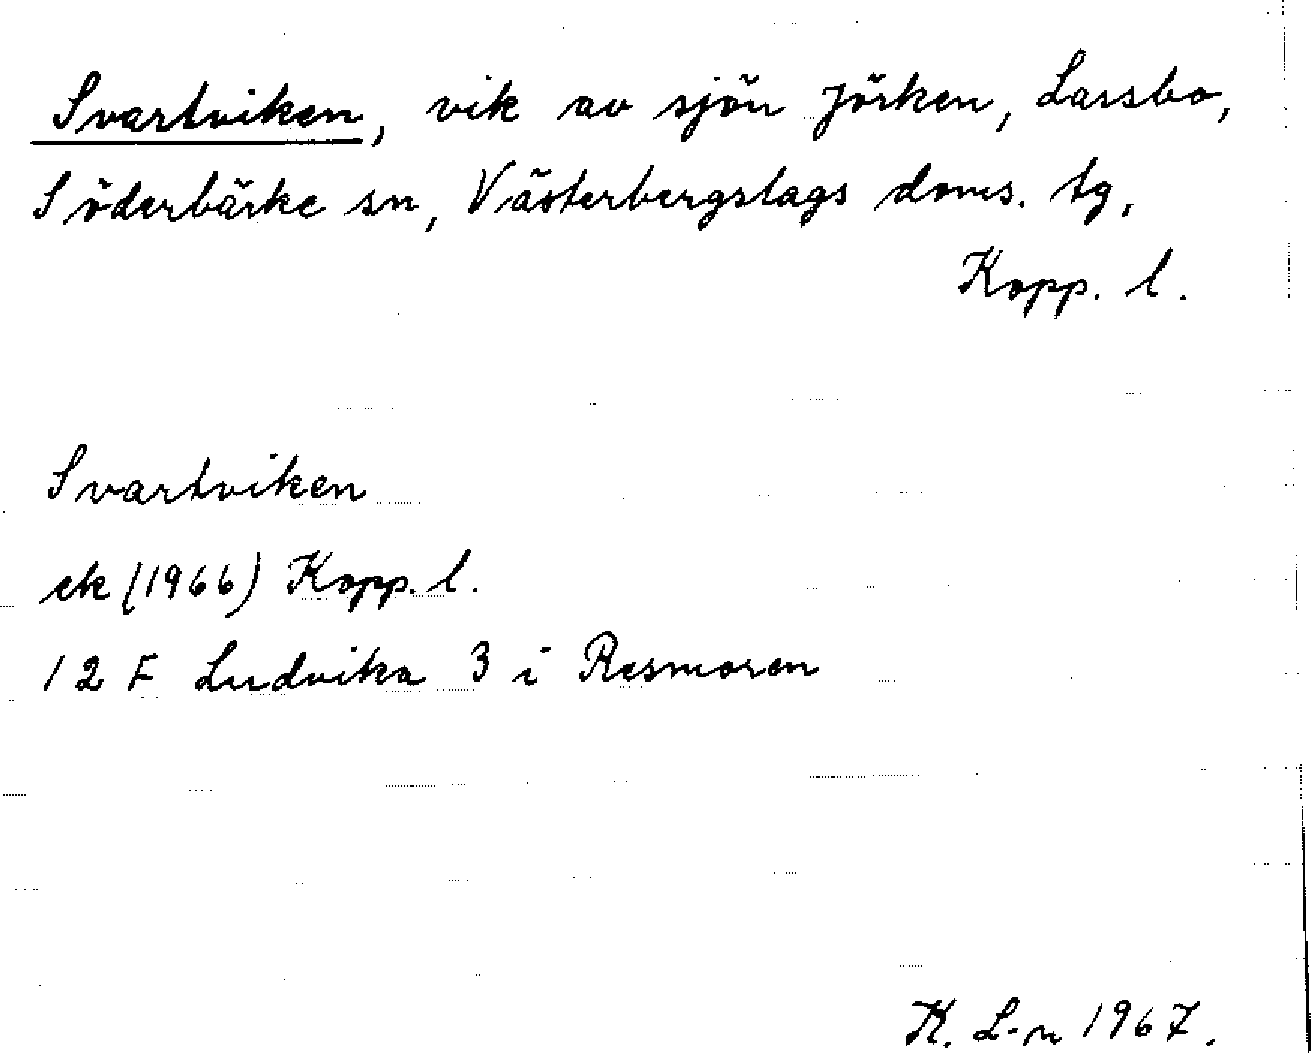 Svartviken, vik av sjön Jörken, Larsbo,
Söderbärke sn, Västerbergslags doms. tg,
Kopp. l.
Svartviken
ek (1966) Kopp. l.
12 F Ludvika 3 i Resmoren
K. L-n 1967.